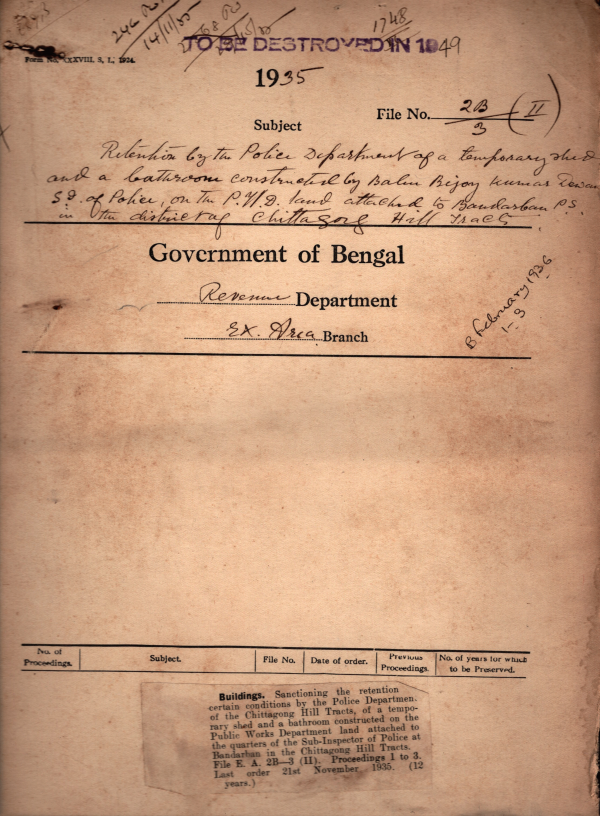 246 P.W.
14/11/35
1748
TO BE DESTROYED IN 1949
Form No. XXXVIII, S, I., 1924.
1935
File No. 2B/3 (II)
Subject
Retention by the Police Department of a temporary shed
and a bathroom constructed by Babu Bijoy Kumar Dewan
S.I. of Police, on the P.W.D. land attached to Bandarban P.S.
in the district of Chittagong Hill Tracts.
Government of Bengal
Revenue Department
Ex. Area Branch
B February 1936
1-3
No. of Proceedings. Subject. File No. Date of order. Previous Proceedings. No. of years for which to be Preserved.
Buildings. Sanctioning the retention
certain conditions by the Police Departmen.
of the Chittagong Hill Tracts, of a tempo-
rary shed and a bathroom constructed on the
Public Works Department land attached to
the quarters of the Sub-Inspector of Police at
Bandarban in the Chittagong Hill Tracts.
File E. A. 2B—3 (II). Proceedings 1 to 3.
Last order 21st November 1935. (12
years.)